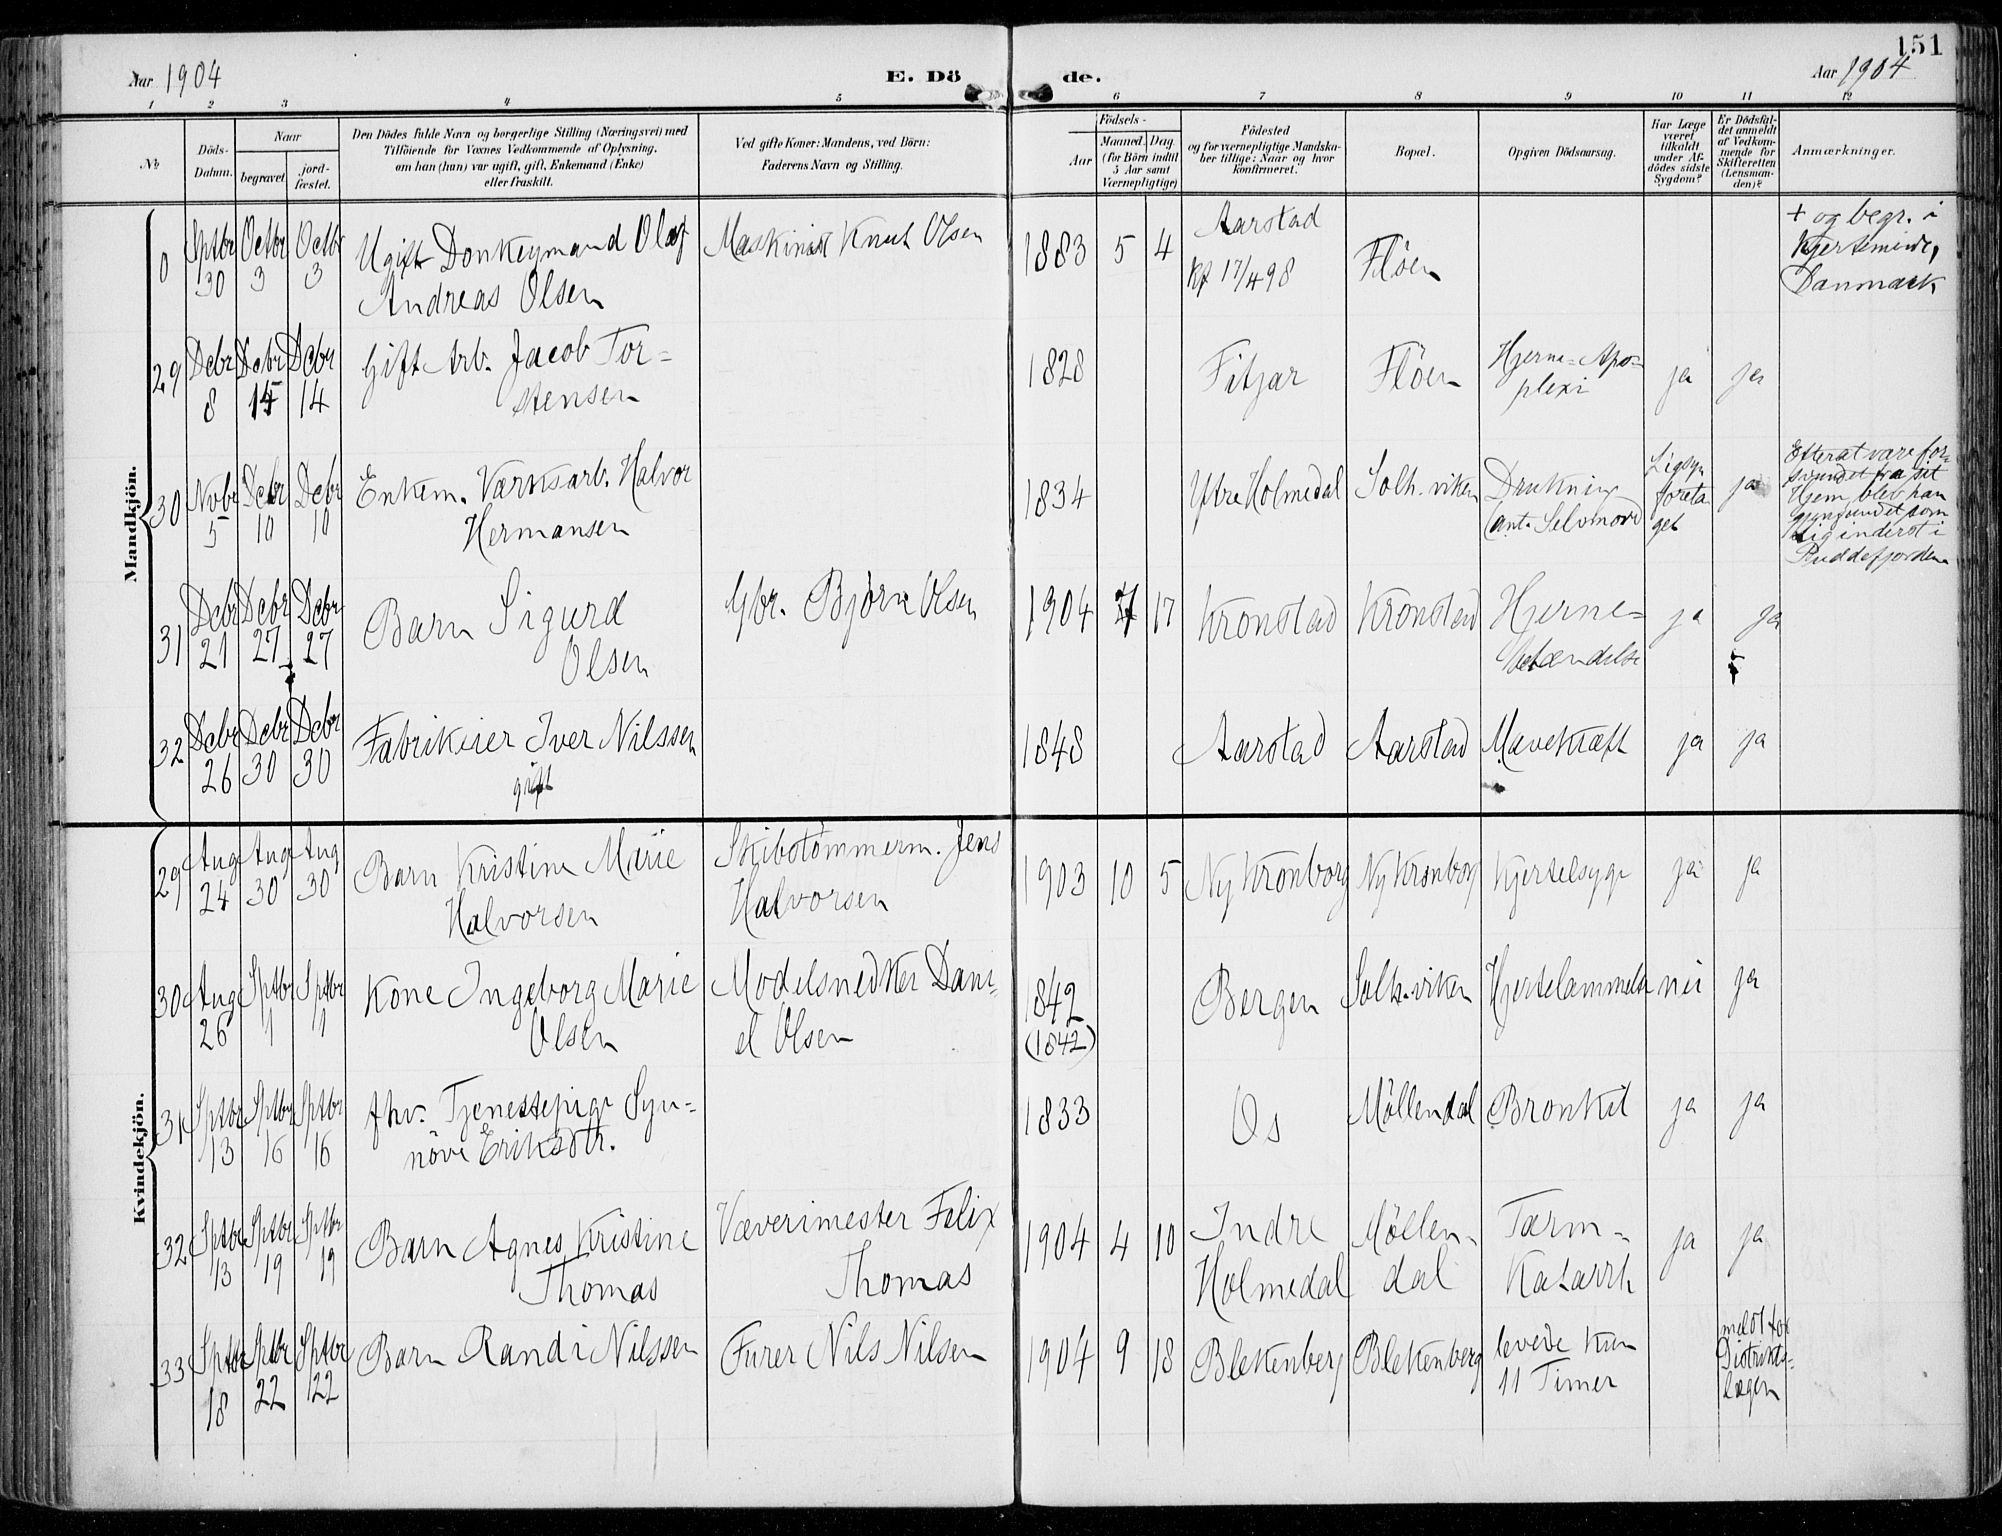 151
Aar 1904
E. Dö de.
Aar 1904
1 2 3 4 5 6 7 8 9 10 11 12
№
Döds-Datum.
Naar
begravet.
jord-fæstet.
Den Dödes fulde Navn og borgerlige Stilling (Næringsvei) med
Tilföiende for Voxnes Vedkommende af Oplysning,
om han (hun) var ugift, gift, Enkemand (Enke)
eller fraskilt.
Ved gifte Koner: Mandens, ved Börn:
Faderens Navn og Stilling.
Födsels-
Aar
Maaned. Dag
(for Börn indtil
5 Aar samt
Værnepligtige)
Födested
og for værnepligtige Mandska-
ber tillige: Naar og hvor
konfirmeret.
Bopæl.
Opgiven Dödsaarsag.
Har Læge
været
tilkaldt
under Af-
dödes sidste
Sygdom?
Er Dödsfal-
det anmeldt
af Vedkom-
mende for
Skifteretten
(Lensman-
den)?
Anmærkninger.
Mandkjön.
0 Sptbr 30 Octbr 3 Octbr 3 Ugift Donkeymand Olaf
Andreas Olsen
Maskinist Knut Olsen
1883 5 4
Aarstad
Kf 17/4 98
Flöen
+ og begr. i
Kjerteminde,
Danmark
29 Dcbr 8 Dcbr 14 Dcbr 14 Gift Arb. Jacob Tor=
stensen
1828 Fitjar Flöen
Hjerne=Apo=
plexi
ja ja
30 Nvbr 5 Dcbr 10 Dcbr 10 Enkem. Værksarb. Halvor
Hermansen
1834 Ytre Holmedal Solh.viken
Drukning
(ant. Selvmord
Ligsyn
foreta
get
ja
Efter at være for=
svundet fra sit
Hjem, blev han
gjenfundet som
Lig inderst i
Puddefjorden
31 Dcbr 21 Dcbr 27 Dcbr 27 Barn Sigurd
Olsen
Gbr. Björn Olsen
1904 17 Kronstad Kronstad
Hjerne=
betændelse
ja ja
32 Dcbr 26 Dcbr 30 Dcbr 30 Fabrikeier Iver Nilssen
gift
1848 Aarstad Aarstad Mavekræft ja ja
Kvindekjön.
29 Aug 24 Aug 30 Aug 30 Barn Kristine Marie
Halvorsen
Skibstömmerm. Jens
Halvorsen
1903 10 5 Ny Kronborg Ny Kronborg Kjertelsyge ja ja
30 Aug 26 Sptbr 1 Sptbr 1 Kone Ingeborg Marie
Olsen
Modelsnedker Dani=
el Olsen
1842
(1842)
Bergen Solh.viken Hjertelammelse nei ja
31 Sptbr 13 Sptbr 16 Sptbr 16 fhv. Tjenestepige Syn=
növe Eriksdtr.
1833 Os Möllendal Bronkit ja ja
32 Sptbr 13 Sptbr 19 Sptbr 19 Barn Agnes Kristine
Thomas
Væverimester Felix
Thomas
1904 4 10
Indre
Holmedal
Möllen-
dal
Tarm=
Katarrh
ja ja
33 Sptbr 18 Sptbr 22 Sptbr 22 Barn Randi Nilssen
Furer Nils Nilsen
1904 9 18 Blekenberg Blekenberg
levede kun
11 Timer
meldt for
Distrikts=
lægen